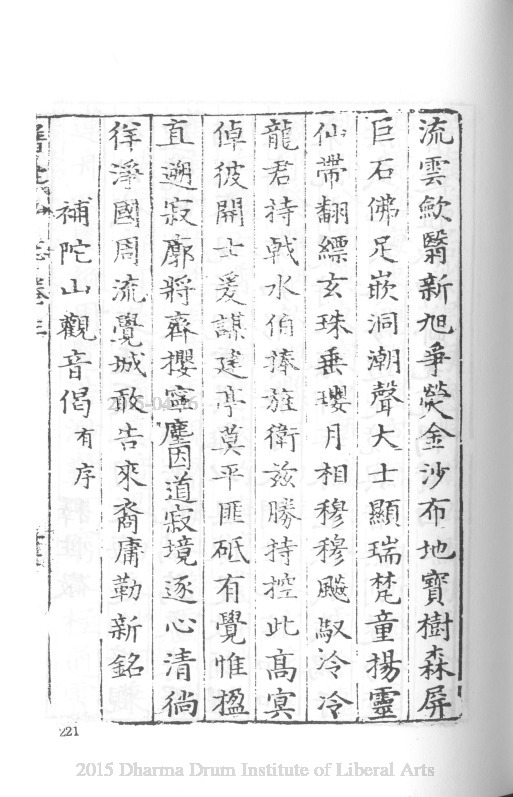 流雲歘翳新旭爭熒金沙布地寶樹森屏
巨石佛足嵌洞潮聲大士顯瑞梵童揚靈
仙帶翻縹玄珠垂瓔月相穆穆飈馭泠泠
龍君持戟水伯捧旌衛茲勝持控此高冥
倬彼開士爰謀建亭莫平匪砥有覺惟楹
直遡寂廓將齊攖寧塵因道寂境逐心清徜
徉淨國周流覺城敢告來裔庸勒新銘
補陀山觀音偈有序
卷三
221
2015 Dharma Drum Institute of Liberal Arts